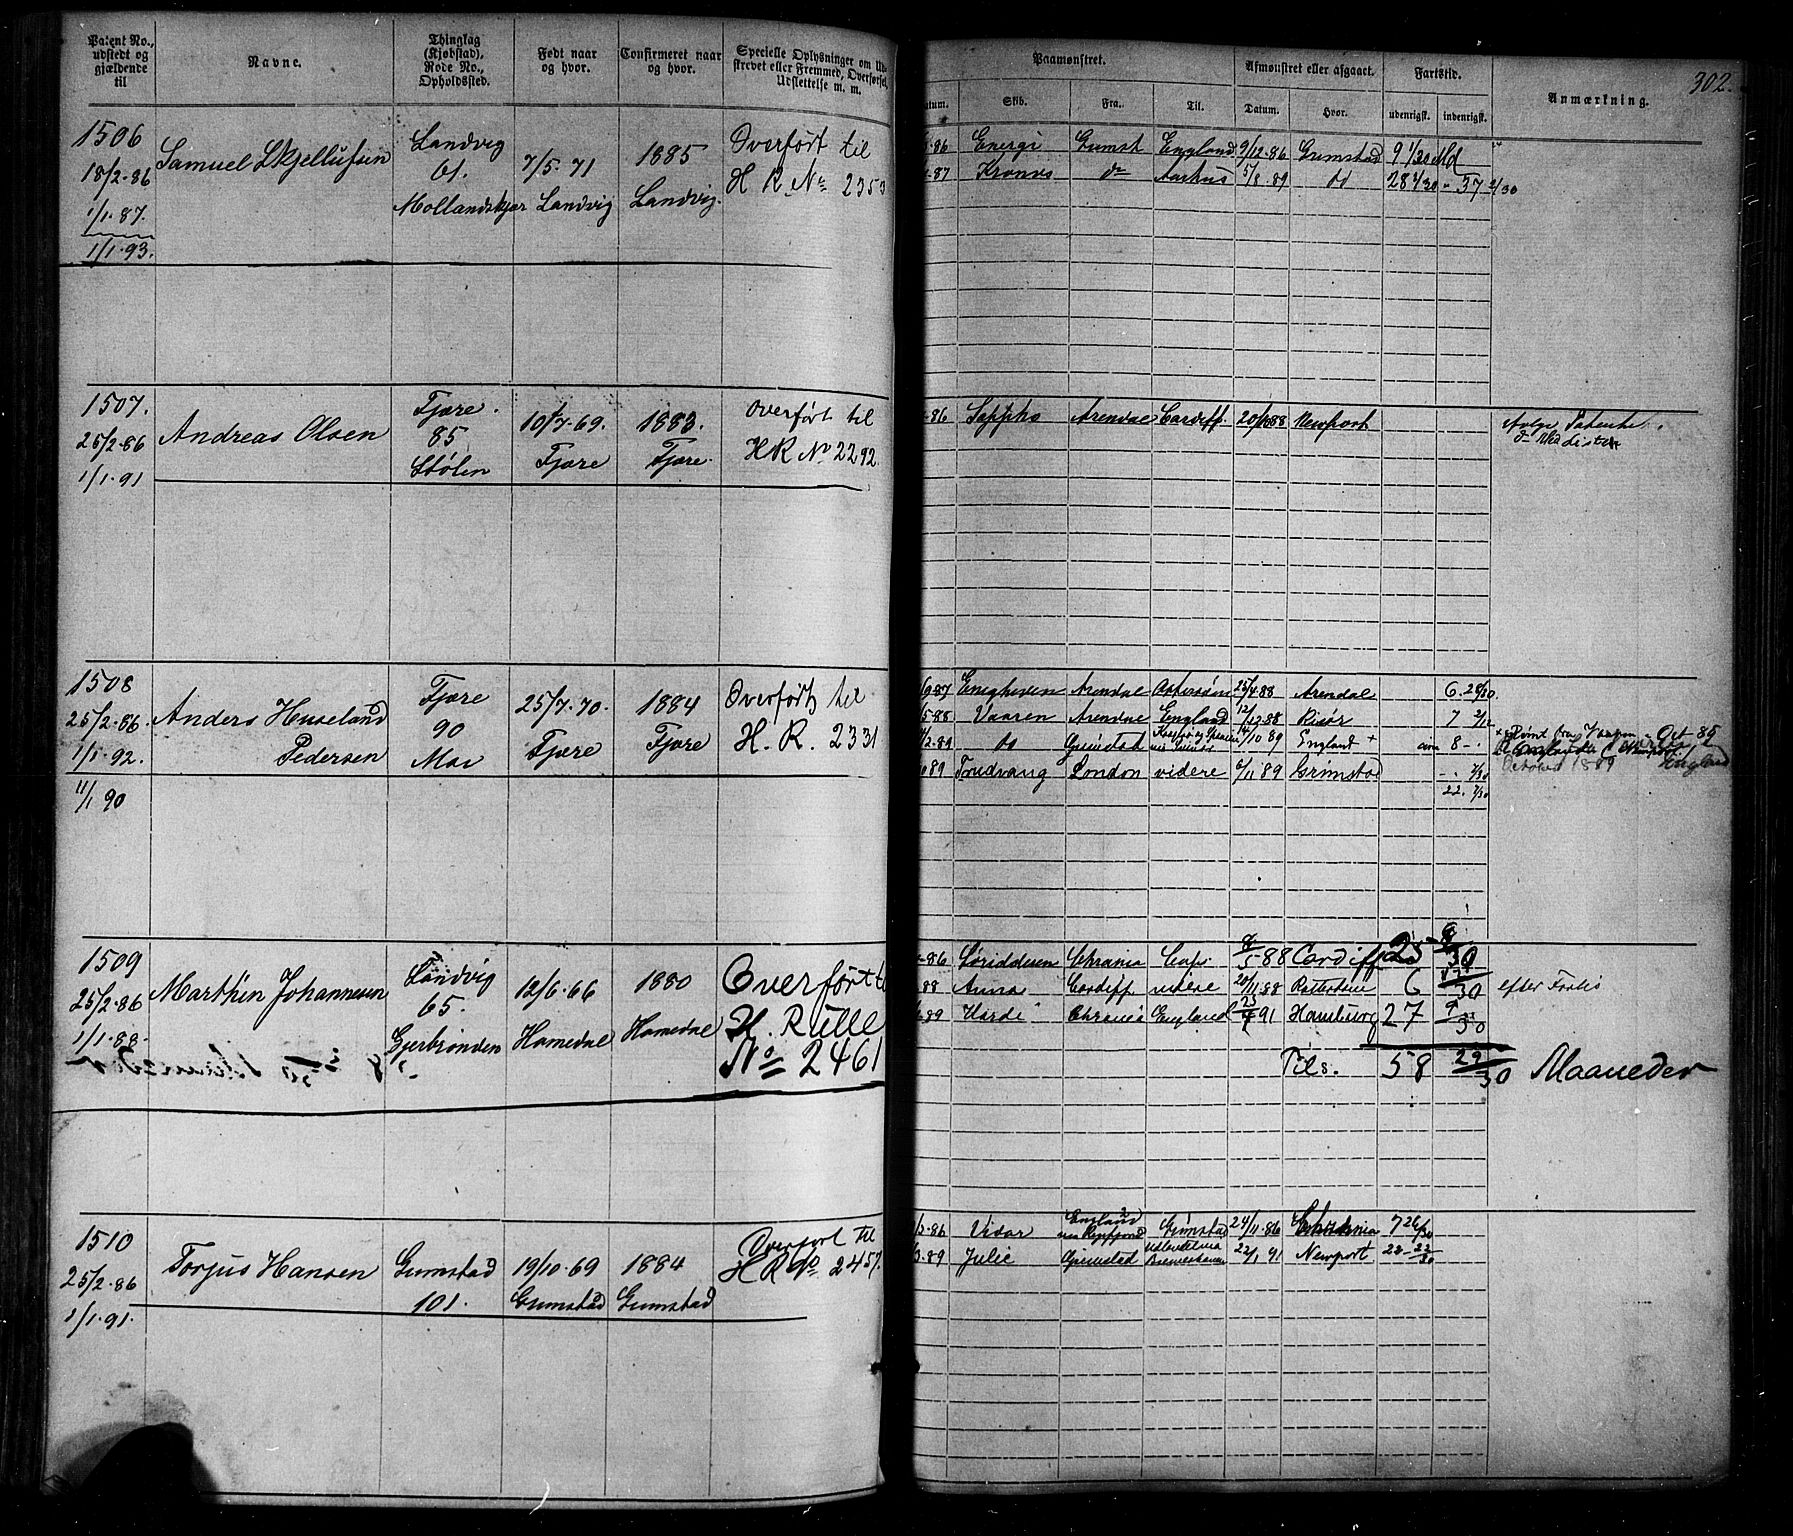 302.
Patent No., udstedt og gjældende til
Navne.
Thinglag (Kjøbstad), Rode No., Opholdssted.
Født naar og hvor.
Confirmeret naar og hvor.
Specielle Oplysninger om Ud-
skrevet eller Fremmed, Overførsel,
Udslettelse m. m.
Paamønstret.
Afmønstret eller afgaaet.
Fartstid.
Anmærkning.
Datum. Skib. Fra. Til. Datum. Hvor. udenrigsk. indenrigsk.
1506
18/2-86
1/1.87.
1/1.93.
Samuel Skjellufsen
Landvig
61.
Mollandskjær
7/5.71
Landvig
1885
Landvig.
Overført til
H R No 2353
86 Energi Grmst England 9/12.86 Grimstad 9 1/30 Md
87 Kronos do Aarhus 5/8.89 do 28 1/30 - 37 2/30
1507.
25/2.86
1/1.91
Andreas Olsen
Fjære.
85
Stølen
10/7.69.
Fjære
1883.
Fjære.
Overført til
HR No 2292.
86 Sappho Arendal Cardiff. Newport
1508
25/2.86.
1/1.92.
11/1 90
Anders Huseland
Pedersen
Fjære
90
Moi
25/7.70.
Fjære
1884
Fjære
Overført til
H. R. 2331
9.87 Enigheden Arendal Østersøen 25/4.88 Arendal 6. 28/30.
5.88 Vaaren Arendal England 12/12.88 Risør 7
2.89 do Grimstad 10 89 England + 8 -.
89 Trudvang London videre 6/11 89 Grimstad
22. 7/30
Oct 89
England
October 1889
1509
25/2.86
1/1.88.
Marthin Johannesen
Landvig
65.
Gjerbrønden
12/6.66
Homedal
1880
Homedal
Overført til
H. Rulle
No 2461
86 Chrania 8/5 88 Cardiff
88 Anna Cardiff videre 20/11.88 Rotterdam 6 /30 efter Forlis
89 Chrania England 91 Hamburg 27 9/30
Tils. 58 29/30 Maaneder
1510
25/2.86
1/1.91.
Torjus Hansen
Grimstad
101.
19/10.69
Grimstad
1884
Grimstad
Overført til
HR No 2457.
86 Vidar England Grimstad 24/11.86 Chrania 7 26/30
3.89 Julie Grimstad Bremerhaven 22/1 91 Newport 22/30